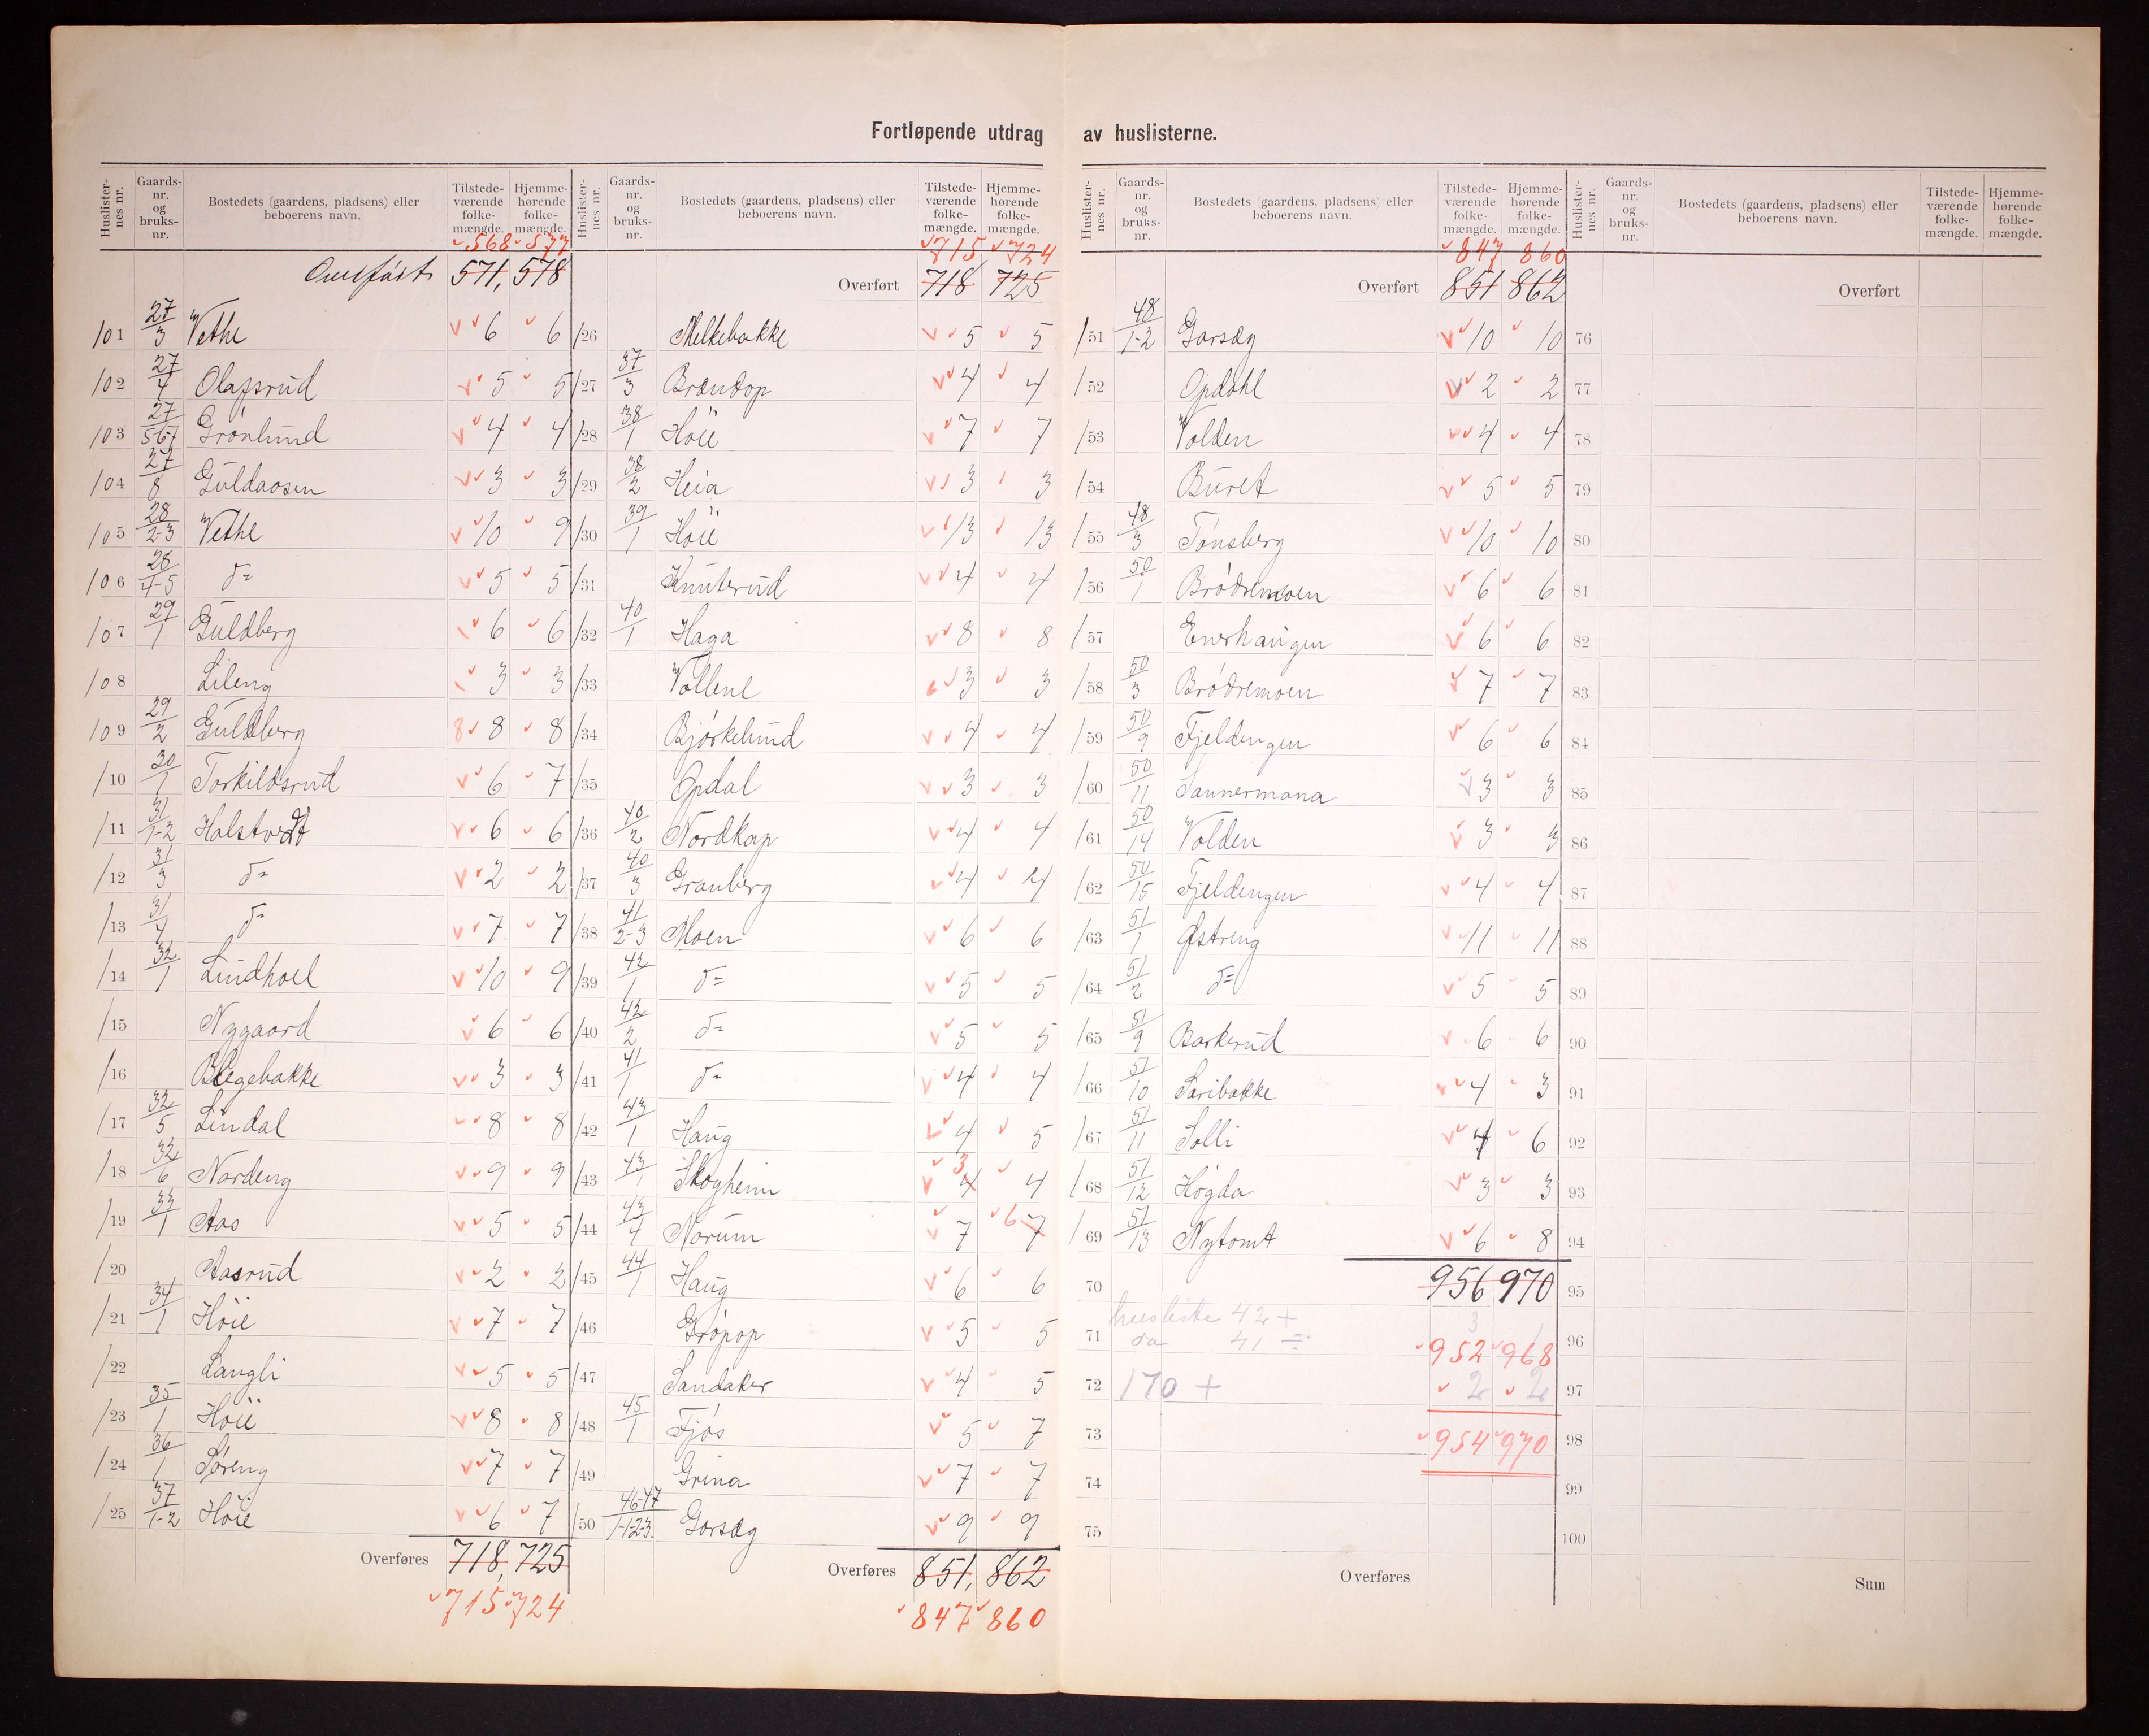 Fortløpende utdrag av huslisterne.
Huslister-nes nr. Gaards-nr. og bruks-nr. Bostedets (gaardens, pladsens) eller beboerens navn. Tilstede-værende folke-mængde. Hjemme-hørende folke-mængde.
568 577
Overført 571, 578
101 27/3 Vethe 6 6
102 27/4 Olafsrud 5 5
103 27/5-6-7 Grønlund 4 4
104 27/8 Guldaasen 3 3
105 28/2-3 Vethe 10 9
106 28/4-5 do 5 5
107 29/1 Guldberg 6 6
108 Lileng 3 3
109 29/2 Guldberg 8 8 8
110 30/1 Torkildsrud 6 7
111 31/1-2 Halstvedt 6 6
112 31/3 do 2 2
113 31/4 do 7 7
114 32/1 Lindhoel 10 9
115 Nygaard 6 6
116 Blegebakke 3 3
117 32/5 Lindal 8 8
118 32/6 Nordeng 9 9
119 33/1 Aas 5 5
120 Aasrud 2 2
121 34/1 Høie 7 7
122 Langli 5 5
123 35/1 Høie 8 8
124 36/1 Søreng 7 7
125 37/1-2 Høie 6 7
Overføres 718, 725
715 724
Huslister-nes nr. Gaards-nr. og bruks-nr. Bostedets (gaardens, pladsens) eller beboerens navn. Tilstede-værende folke-mængde. Hjemme-hørende folke-mængde.
715 724
Overført 718 725
126 Melkebakke 5 5
127 37/3 Brændop 4 4
128 38/1 Høie 7 7
129 38/2 Heia 3 3
130 39/1 Høie 13 13
131 Knuterud 4 4
132 40/1 Haga 8 8
133 Vollene 3 3
134 Bjørkelund 4 4
135 Opdal 3 3
136 40/2 Nordkap 4 4
137 40/3 Granberg 4 4
138 41/2-3 Moen 6 6
139 42/1 do 5 5
140 42/2 do 5 5
141 41/1 do 4 4
142 43/1 Haug 4 5
143 43/1 Skogheim 3 4 4
144 43/4 Norum 7 6 7
145 44/1 Haug 6 6
146 Grøpop 5 5
147 Sandaker 4 5
148 45/1 Fjøs 5 7
149 Grina 7 7
150 46-47/1-1-2-3. Gorsæg 9 9
Overføres 851, 862
847 860
Huslister-nes nr. Gaards-nr. og bruks-nr. Bostedets (gaardens, pladsens) eller beboerens navn. Tilstede-værende folke-mængde. Hjemme-hørende folke-mængde.
847 860
Overført 851 862
151 48/1-2 Gorsæg 10 10
152 Opdahl 2 2
153 Volden 4 4
154 Buret 5 5
155 48/3 Tønsberg 10 10
156 50/1 Brødremoen 6 6
157 Enerhaugen 6 6
158 50/3 Brødremoen 7 7
159 50/9 Fjeldengen 6 6
160 50/11 Sannermana 3 3
161 50/14 Volden 3 3
162 50/15 Fjeldengen 4 4
163 51/1 Østreng 11 11
164 51/2 do 5 5
165 51/9 Barkerud 6 6
166 51/10 Saribakke 4 3
167 51/11 Solli 4 6
168 51/12 Høgda 3 3
169 51/13 Nytomt 6 8
70 956 970
71 husliste 42 + 3
do 41 = 1
952 968
72 170 + 2 2
73 954 970
74
75
Overføres
Huslister-nes nr. Gaards-nr. og bruks-nr. Bostedets (gaardens, pladsens) eller beboerens navn. Tilstede-værende folke-mængde. Hjemme-hørende folke-mængde.
Overført
76
77
78
79
80
81
82
83
84
85
86
87
88
89
90
91
92
93
94
95
96
97
98
99
100
Sum